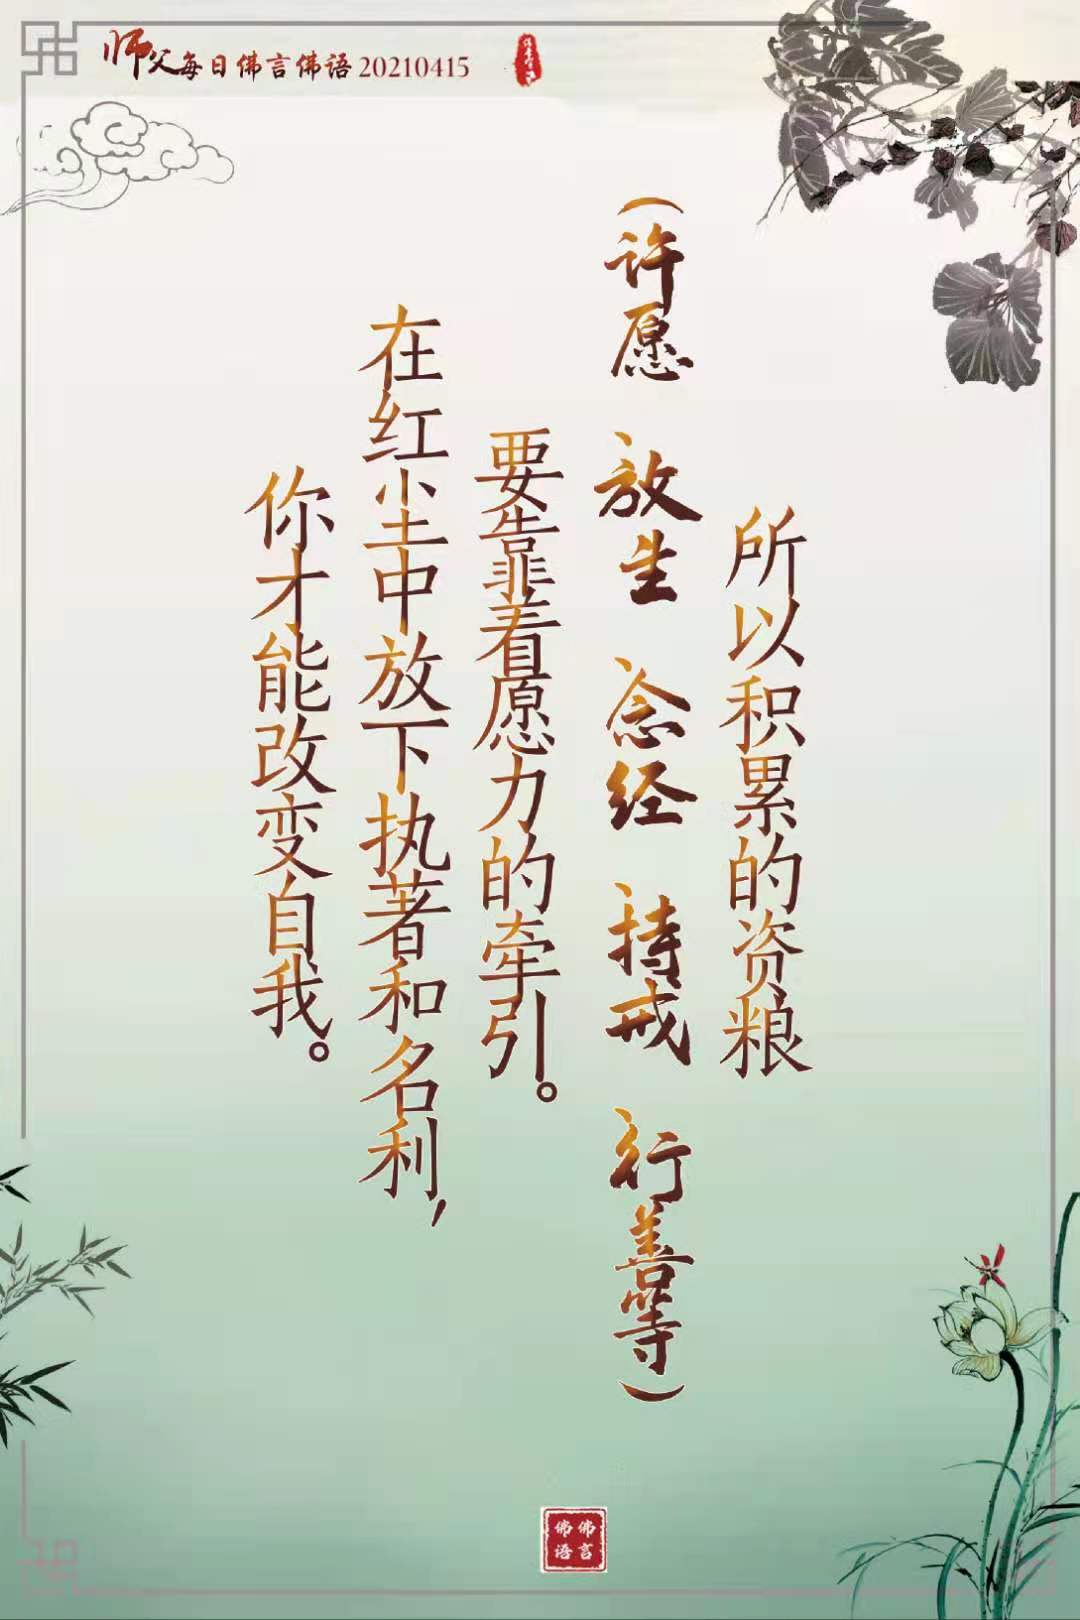 师父每日佛言佛语 20210415
所以积累的资粮
(许愿 放生 念经 持戒 行善等)
要靠着愿力的牵引。
在红尘中放下执著和名利,
你才能改变自我。
佛言
佛语